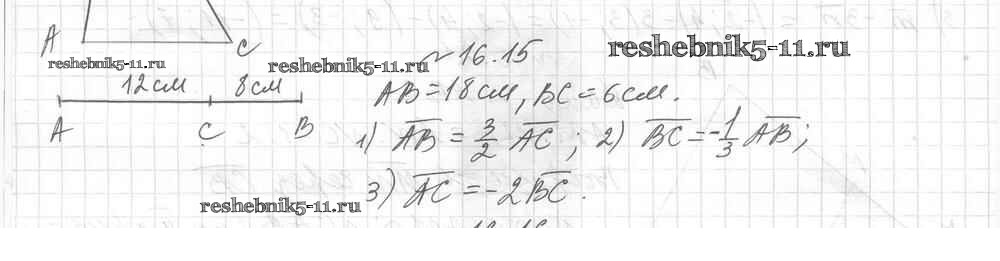 A C
reshebnik5-11.ru
12см 8см
A C B
reshebnik5-11.ru
№ 16.15
reshebnik5-11.ru
AB = 18 см, BC = 6 см.
1) AB = 3/2 AC ; 2) BC = -1/3 AB ;
3) AC = -2BC .
reshebnik5-11.ru